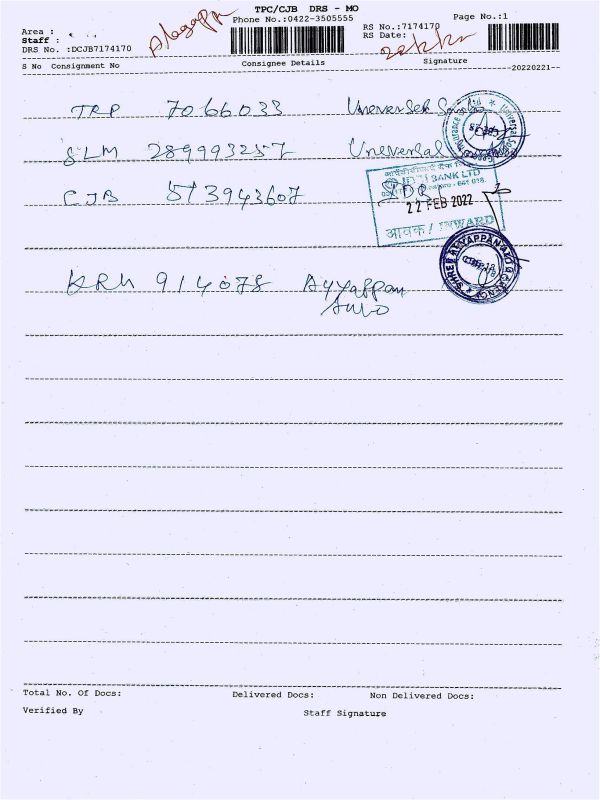 TPC/CJB DRS - MO
Phone No.:0422-3505555
Page No.:1
Area :
Staff :
DRS No. :DCJB7174170
Alagappa
RS No.:7174170
RS Date:
S No Consignment No
Consignee Details
Signature
--20220221--
TRP 7066033
SLM 289993257 Uneversal
CJB 513943607 IDBI
BANK LTD
22 FEB 2022
आवक / INWARD
KRM 914078 Ayyappan
Auto
SHREE AYYAPPAN AUTO AGENCY
Total No. Of Docs:
Delivered Docs:
Non Delivered Docs:
Verified By
Staff Signature